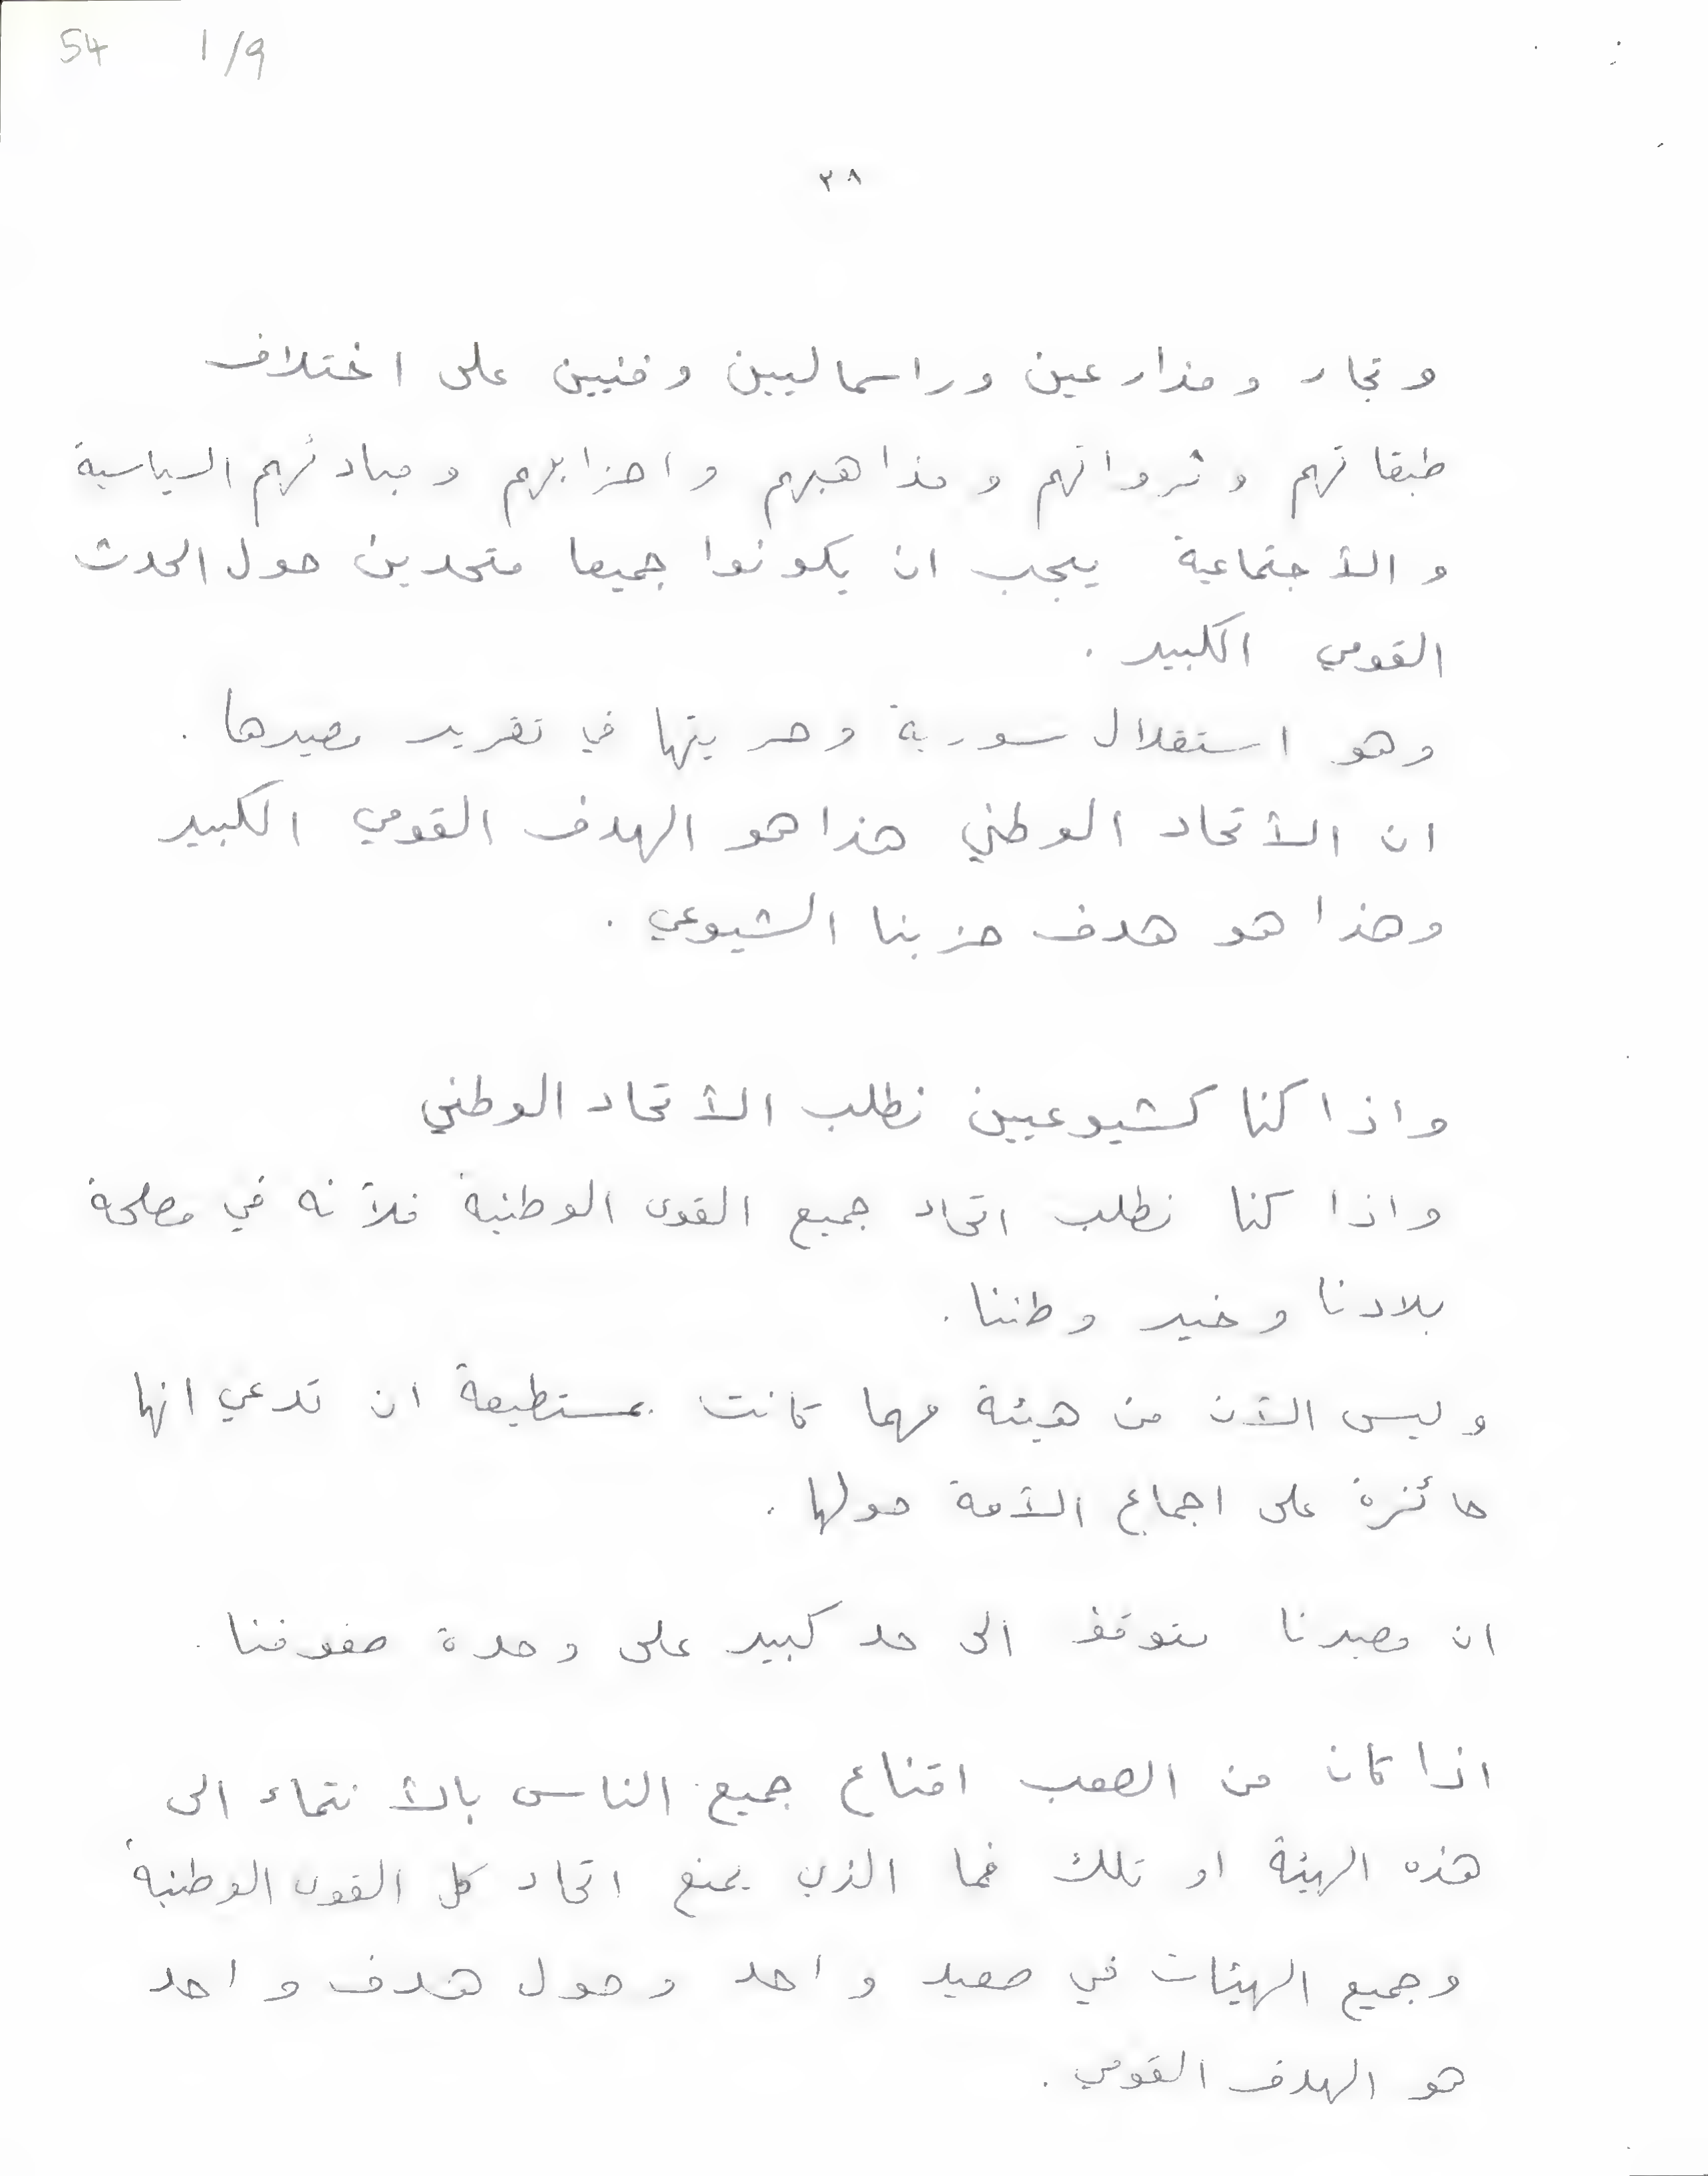 54 1/9
٢٨
وتجار ومزارعين وراسماليين وفنيين على اختلاف
طبقاتهم وثرواتهم ومذاهبهم واحزابهم ومبادئهم السياسية
والأجتماعية يجب ان يكونوا جميعا متحدين حول الحدث
القومي الكبير .
وهو استقلال سورية وحريتها في تقرير مصيرها .
ان الأتحاد الوطني هذا هو الهدف القومي الكبير
وهذا هو هدف حزبنا الشيوعي .
واذا كنا كشيوعيين نطلب الأتحاد الوطني
واذا كنا نطلب اتحاد جميع القوى الوطنية فلأنه في مصلحة
بلادنا وخير وطننا .
وليس الآن من هيئة مهما كانت بمستطيعة ان تدعي انها
حائزة على اجماع الأمة حولها .
ان مصيرنا يتوقف الى حد كبير على وحدة صفوفنا .
اذا كان من الصعب اقناع جميع الناس بالأنتماء الى
هذه الهيئة او تلك فما الذي يمنع اتحاد كل القوى الوطنية
وجميع الهيئات في صعيد واحد وحول هدف واحد
هو الهدف القومي .